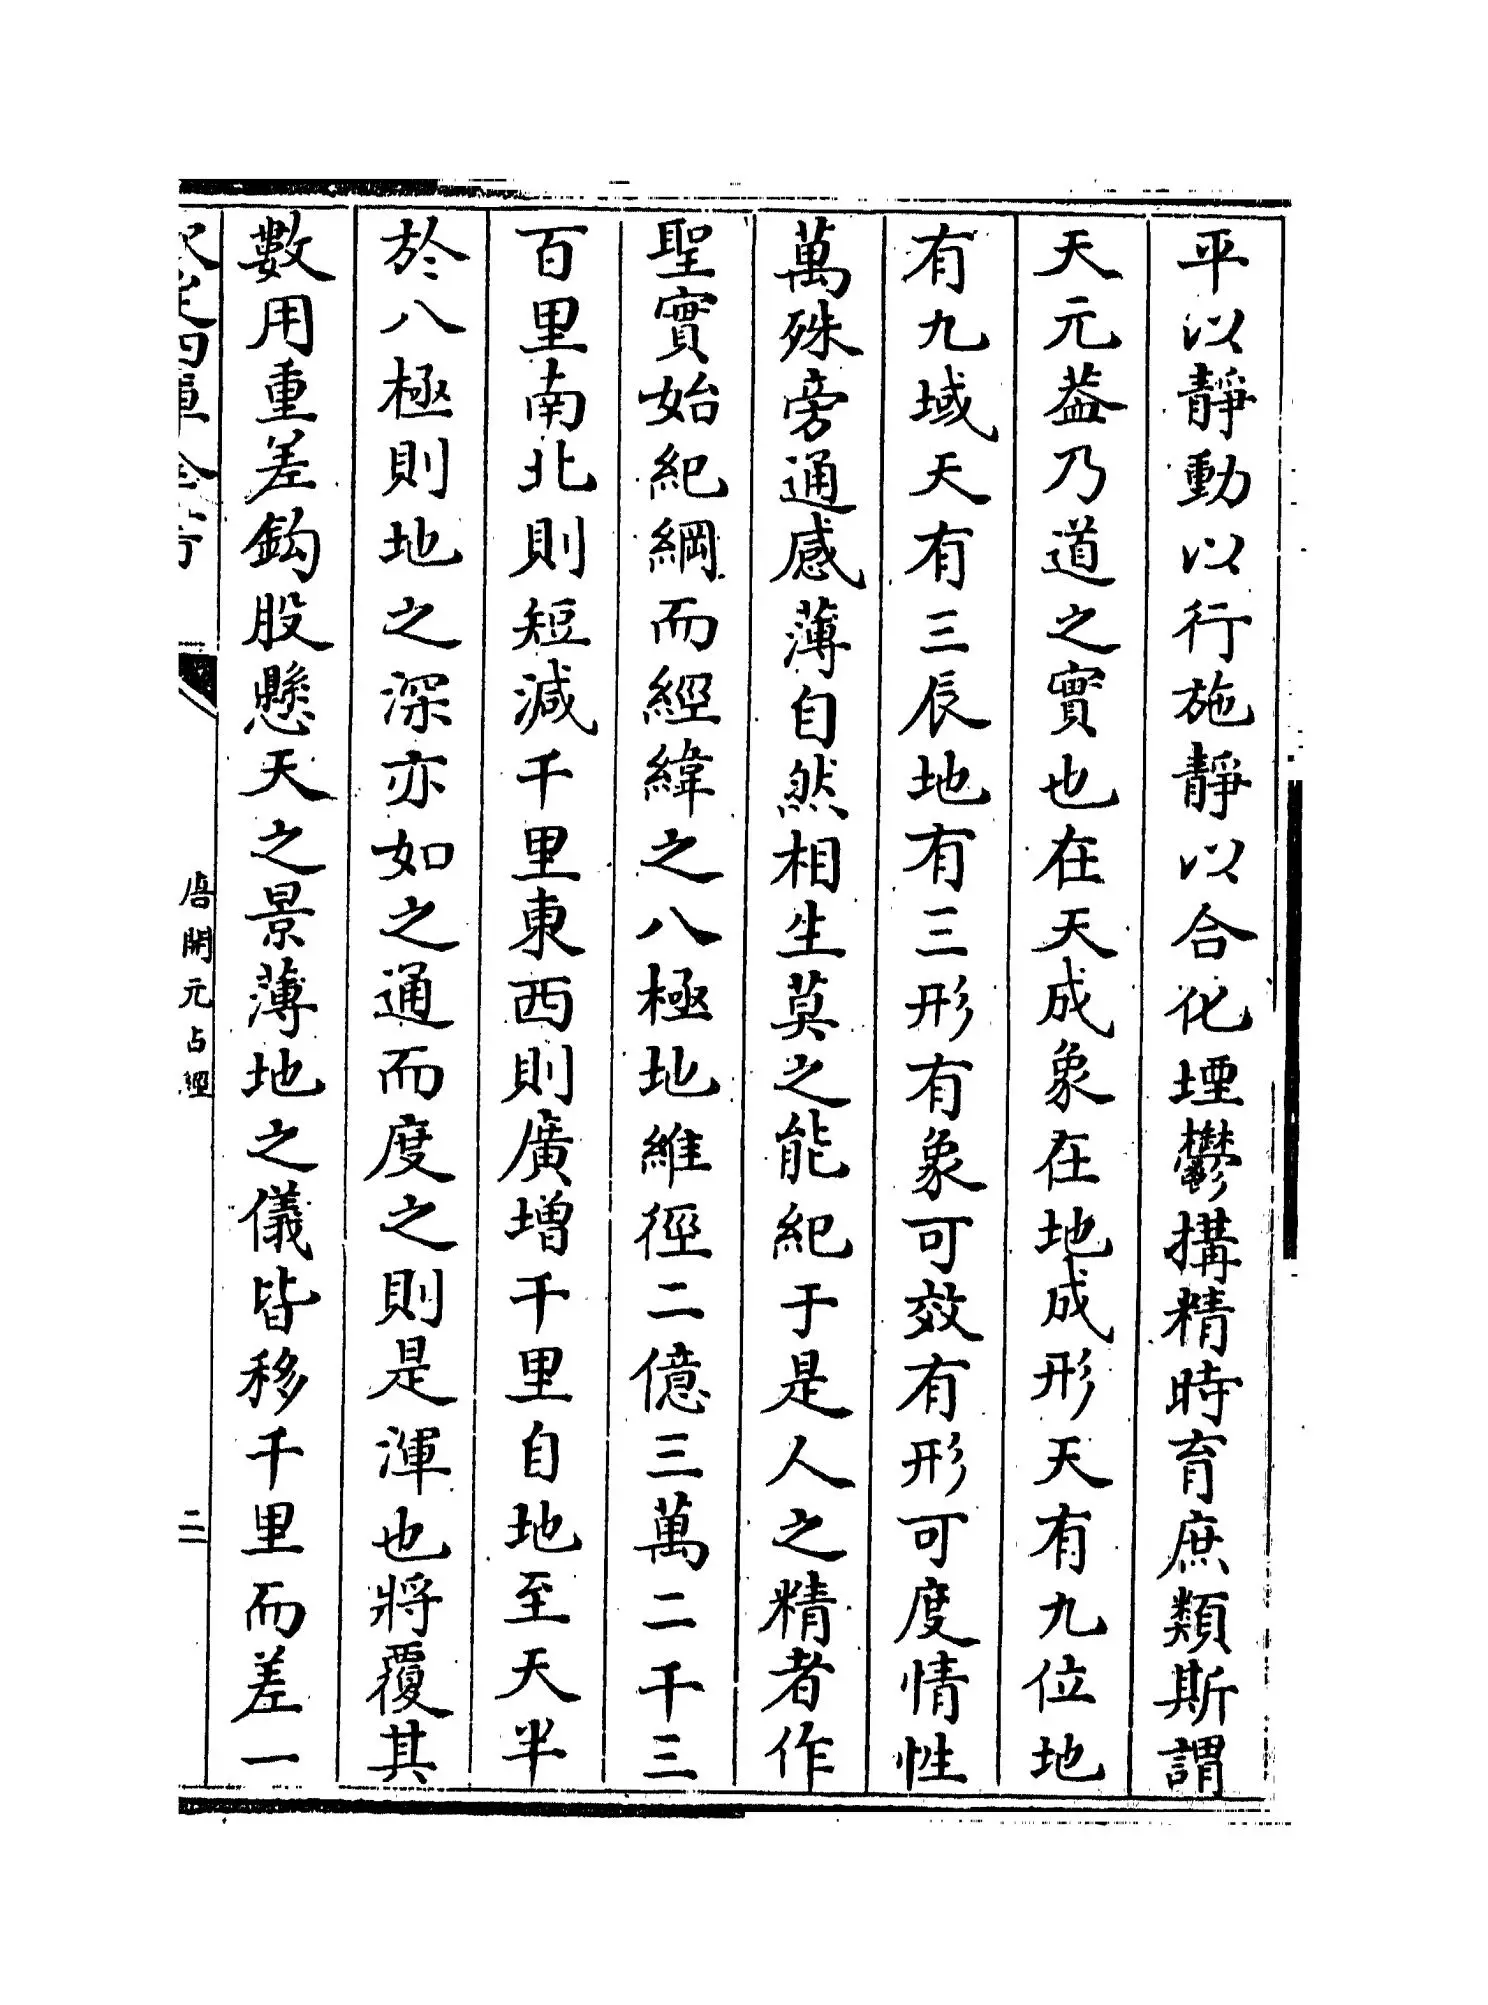 平以靜動以行施靜以合化堙鬱搆精時育庶類斯謂
天元葢乃道之實也在天成象在地成形天有九位地
有九域天有三辰地有三形有象可效有形可度情性
萬殊旁通感薄自然相生莫之能紀于是人之精者作
聖實始紀綱而經緯之八極地維徑二億三萬二千三
百里南北則短減千里東西則廣增千里自地至天半
於八極則地之深亦如之通而度之則是渾也將覆其
數用重差鈎股懸天之景薄地之儀皆移千里而差一
欽定四庫全書
唐開元占經
二